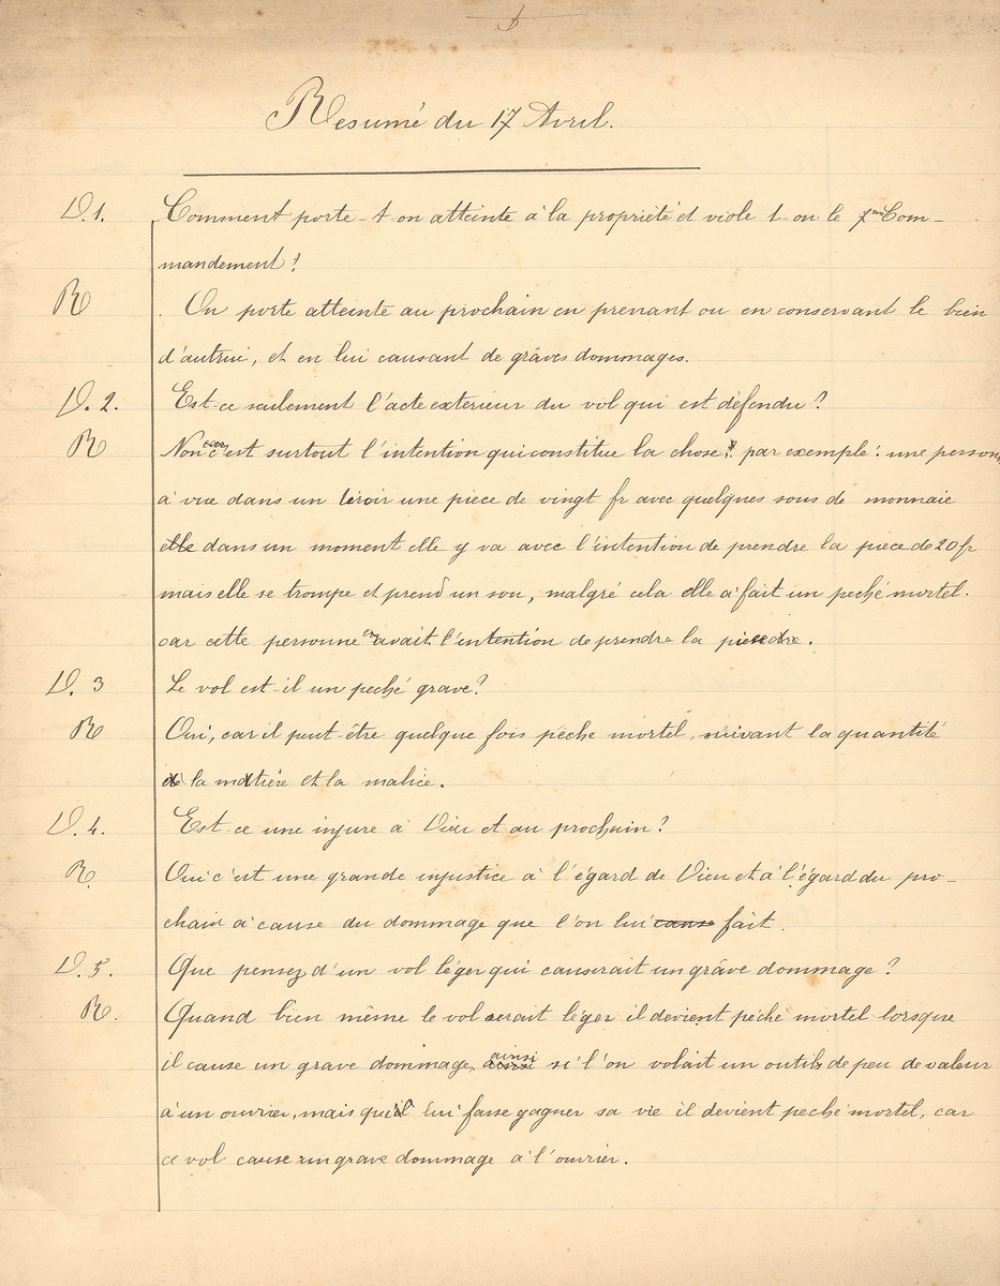 Resumé du 17 Avril.
D.1. Comment porte-t-on atteinte à la propriété et viole t-on le 7me Com-
mandement?
R On porte atteinte au prochain en prenant ou en conservant le bien
d'autrui, et en lui causant de grâves dommages.
D.2. Est-ce seulement l'acte exterieur du vol qui est défendu?
R Non car c'est surtout l'intention qui constitue la chose. par exemple: une personne
a vue dans un tiroir une pièce de vingt fr avec quelques sous de monnaie
elle dans un moment elle y va avec l'intention de prendre la pièce de 20 fr
mais elle se trompe et prend un sou, malgré cela elle a fait un peché mortel.
car cette personne avait l'intention de prendre la
D. 3 Le vol est-il un peché grave?
R Oui, car il peut-être quelque fois peche mortel, suivant la quantité
la matière et la malice.
D.4. Est-ce une injure à Dieu et au prochain?
R. Oui c'est une grande injustice à l'égard de Dieu et à l'égard du pro-
chain à cause du dommage que l'on lui cause fait.
D.5. Que pensez d'un vol léger qui causerait un grâve dommage?
R. Quand bien même le vol serait léger il devient péché mortel lorsque
il cause un grave dommage, ainsi si l'on volait un outils de peu de valeur
à un ouvrier, mais qui lui fasse gagner sa vie il devient peché mortel, car
ce vol cause un grave dommage à l'ouvrier.